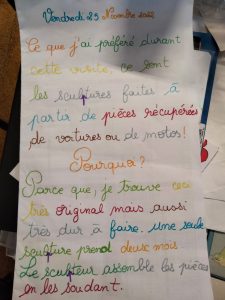 Vendredi 25 Novembre 2022
Ce que j'ai préféré durant
cette visite, ce sont
les sculptures faites à
partir de pièces récupérées
de voitures ou de motos!
Pourquoi?
Parce que, je trouve ceci
très original mais aussi
très dur à faire. Une seule
sculpture prend deux mois
Le sculpteur assemble les pièces
en les soudant.